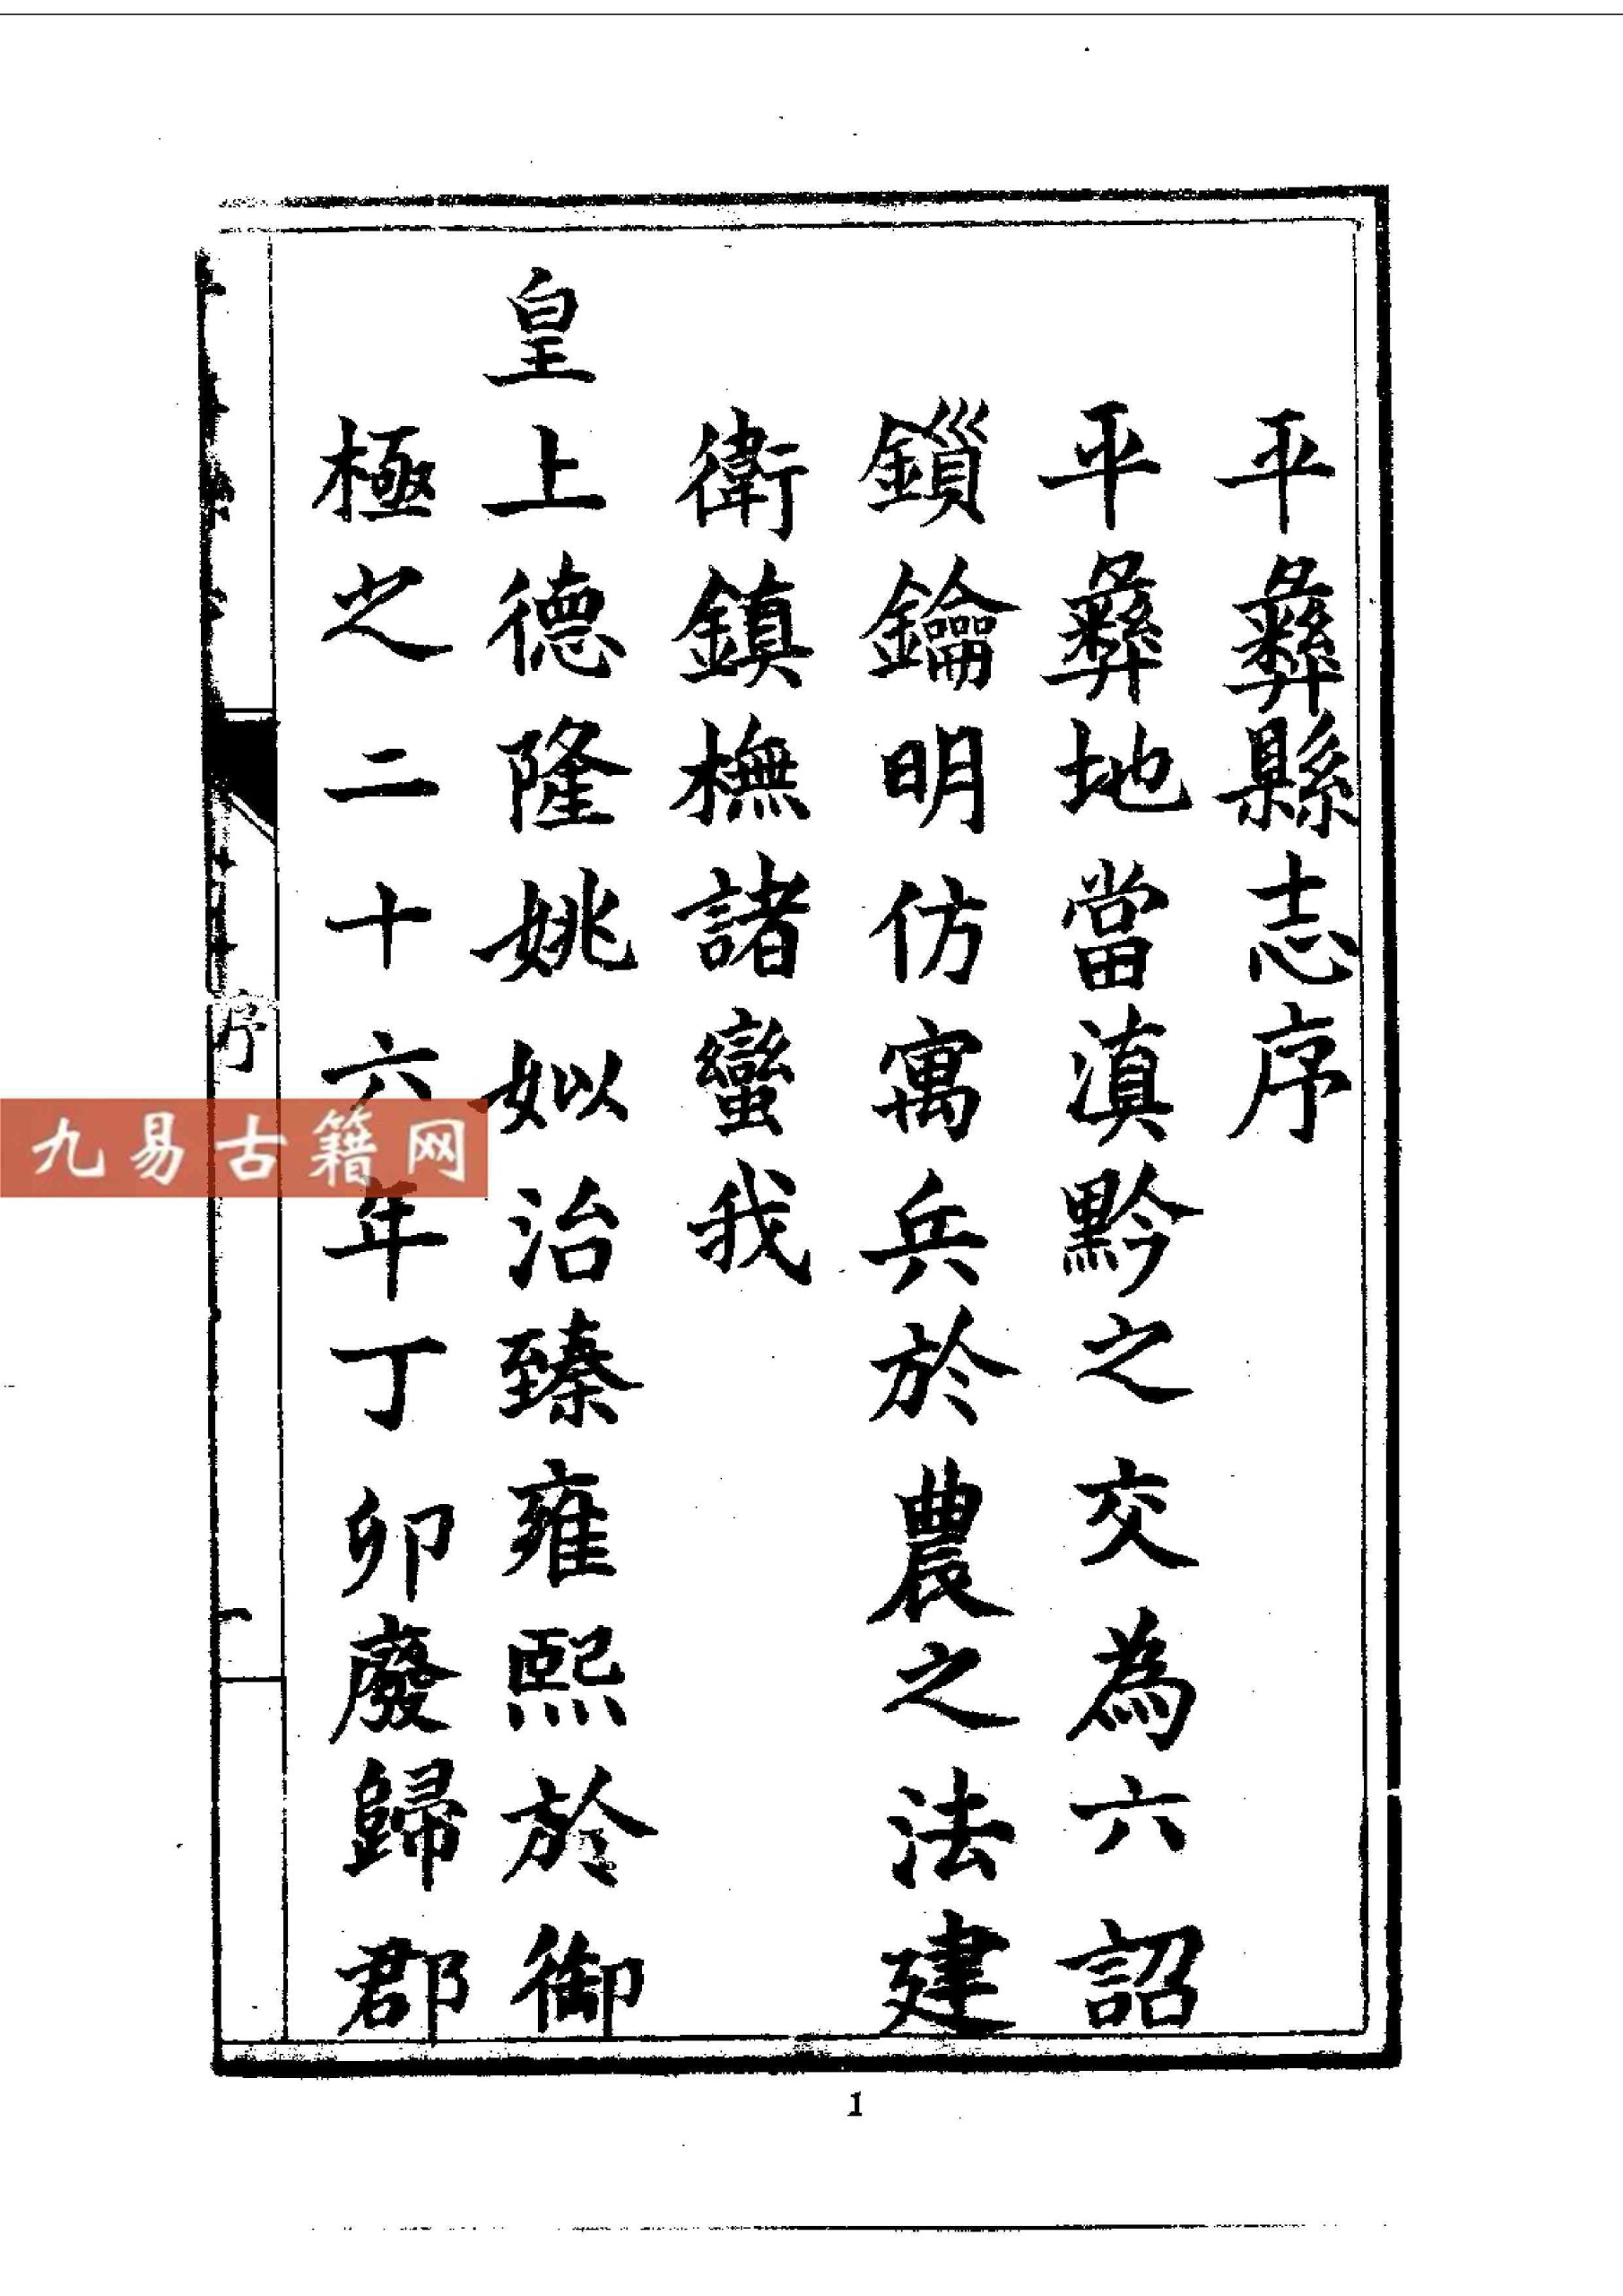 平彝縣志序
平彝地當滇黔之交為六詔
鎻鑰明仿寓兵於農之法建
衛鎮橅諸蠻我
皇上德隆姚姒治臻雍熙於御
極之二十六年丁卯廢歸郡
序
一
九易古籍网
1